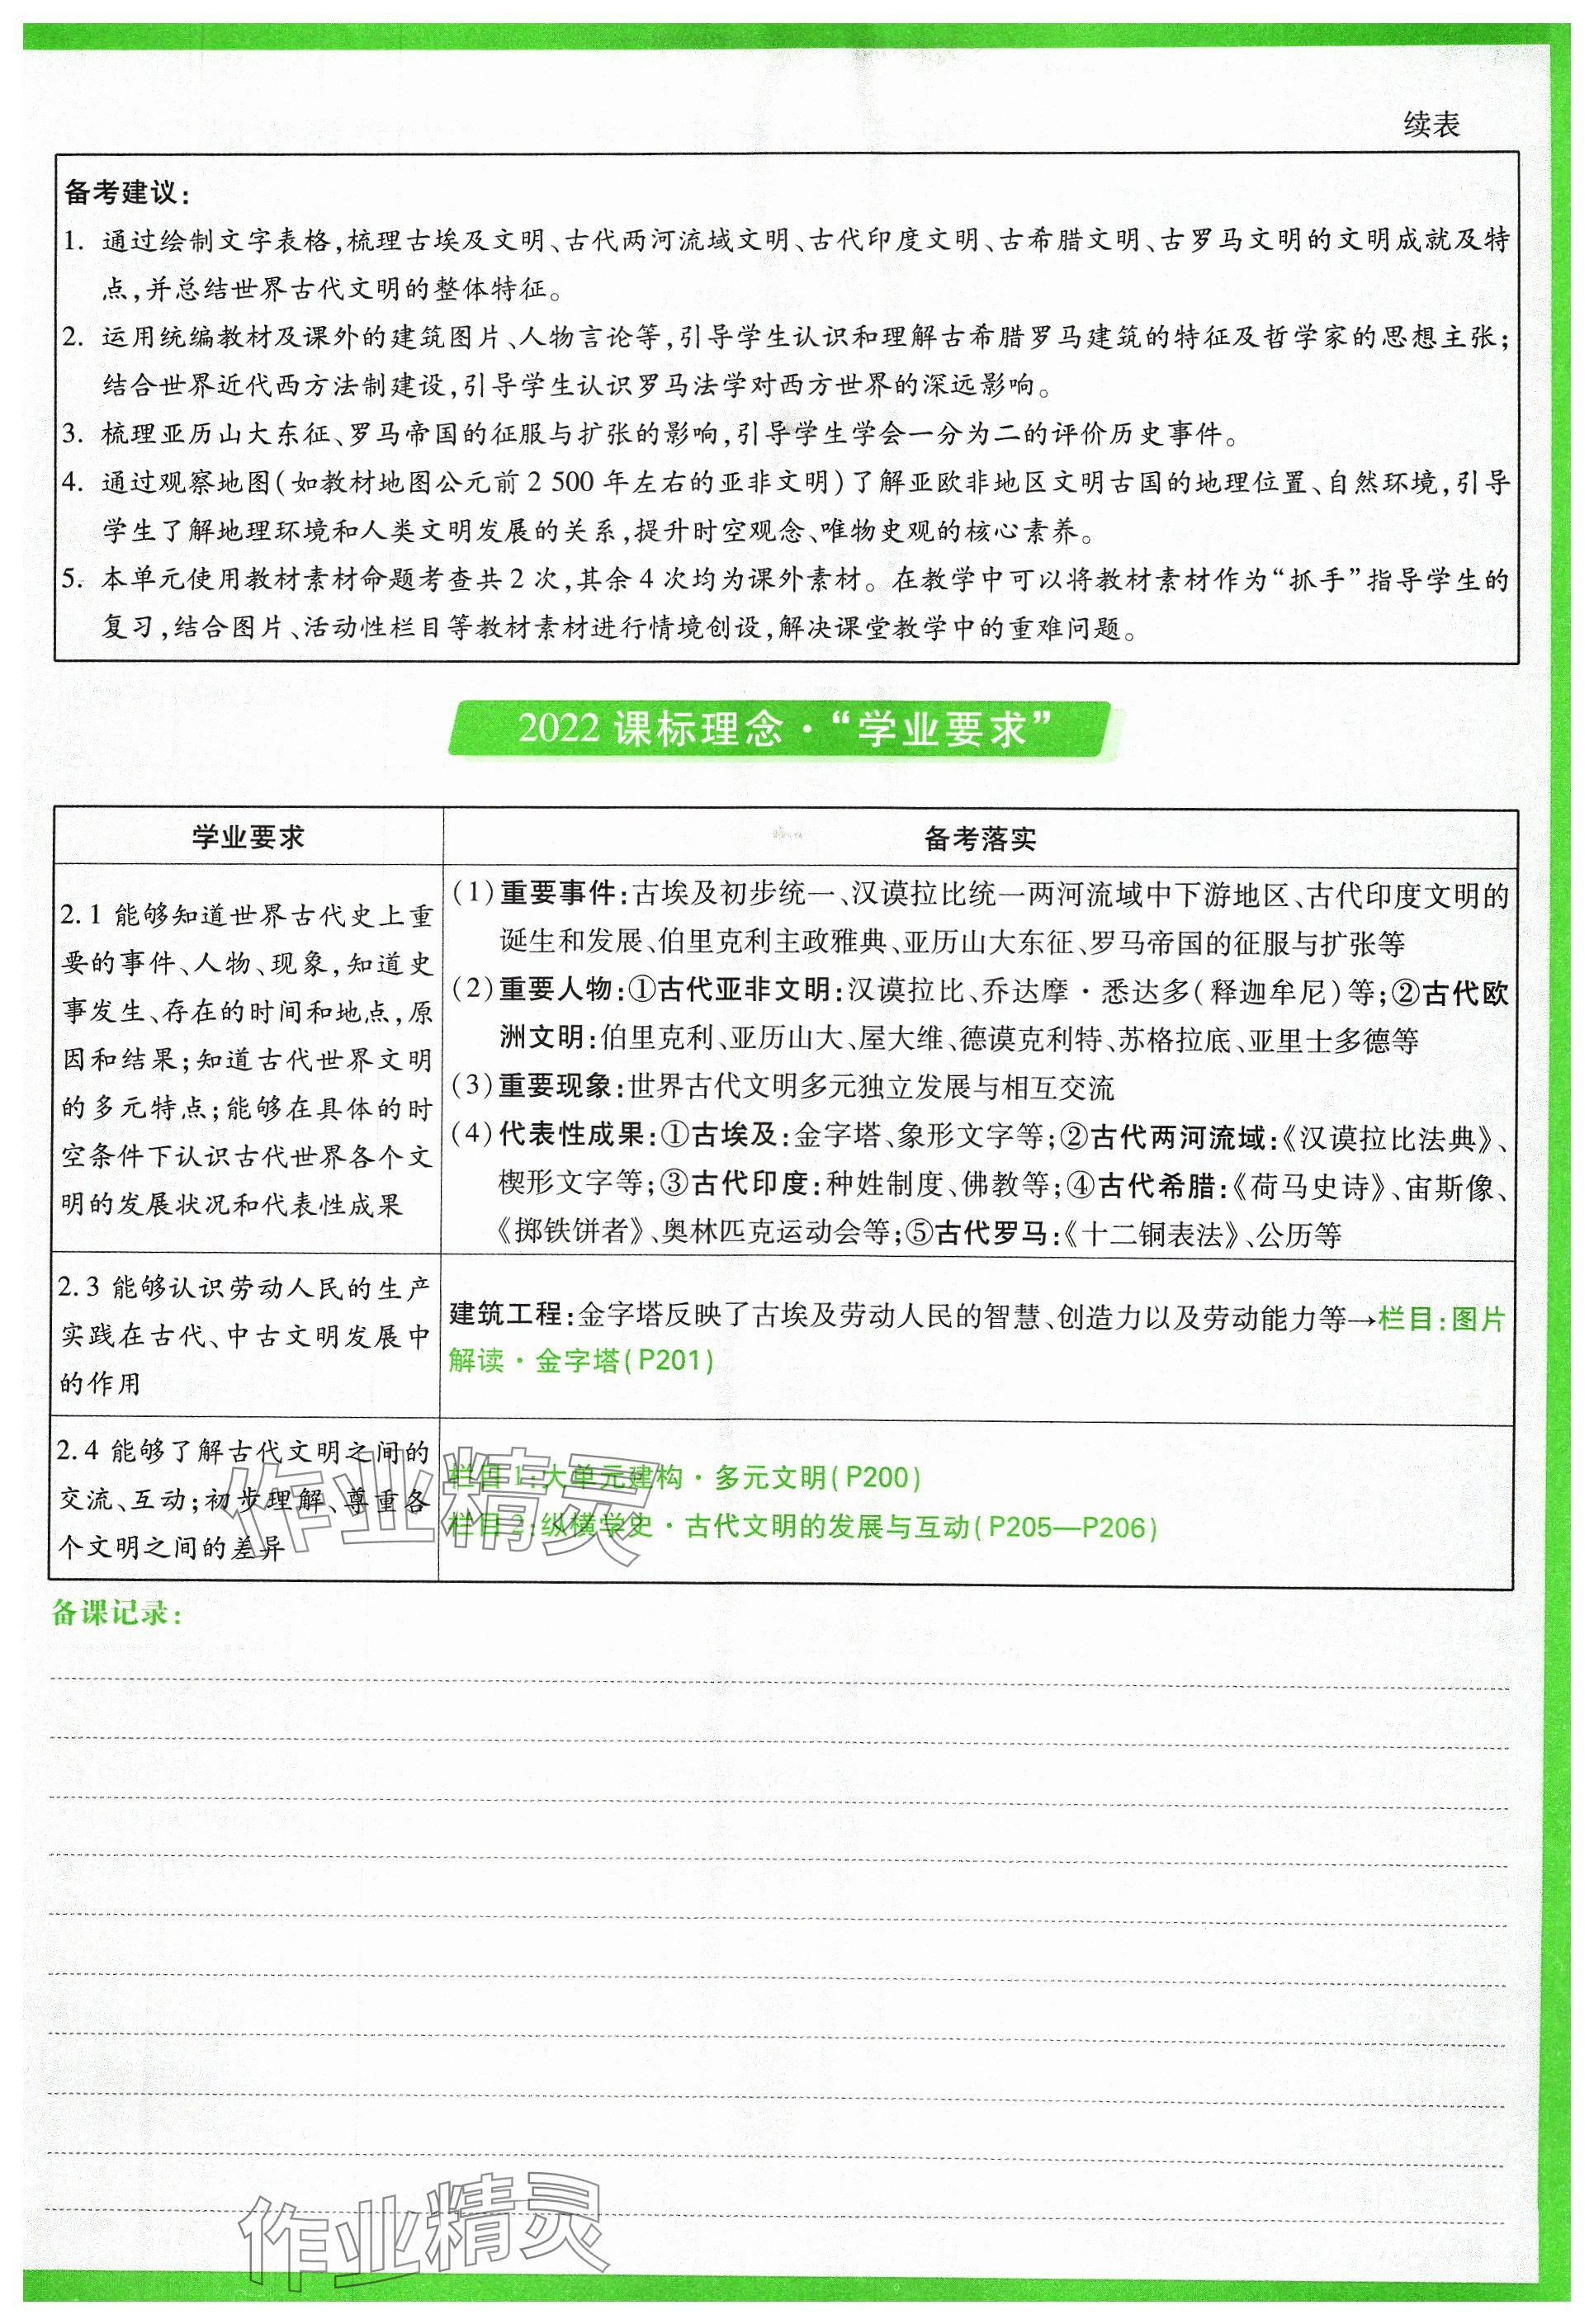 续表
备考建议：
1. 通过绘制文字表格，梳理古埃及文明、古代两河流域文明、古代印度文明、古希腊文明、古罗马文明的文明成就及特
点，并总结世界古代文明的整体特征。
2. 运用统编教材及课外的建筑图片、人物言论等，引导学生认识和理解古希腊罗马建筑的特征及哲学家的思想主张；
结合世界近代西方法制建设，引导学生认识罗马法学对西方世界的深远影响。
3. 梳理亚历山大东征、罗马帝国的征服与扩张的影响，引导学生学会一分为二的评价历史事件。
4. 通过观察地图（如教材地图公元前 2 500 年左右的亚非文明）了解亚欧非地区文明古国的地理位置、自然环境，引导
学生了解地理环境和人类文明发展的关系，提升时空观念、唯物史观的核心素养。
5. 本单元使用教材素材命题考查共 2 次，其余 4 次均为课外素材。在教学中可以将教材素材作为“抓手”指导学生的
复习，结合图片、活动性栏目等教材素材进行情境创设，解决课堂教学中的重难问题。
2022 课标理念·“学业要求”
学业要求
备考落实
2.1 能够知道世界古代史上重
要的事件、人物、现象，知道史
事发生、存在的时间和地点，原
因和结果；知道古代世界文明
的多元特点；能够在具体的时
空条件下认识古代世界各个文
明的发展状况和代表性成果
（1）重要事件：古埃及初步统一、汉谟拉比统一两河流域中下游地区、古代印度文明的
诞生和发展、伯里克利主政雅典、亚历山大东征、罗马帝国的征服与扩张等
（2）重要人物：①古代亚非文明：汉谟拉比、乔达摩·悉达多（释迦牟尼）等；②古代欧
洲文明：伯里克利、亚历山大、屋大维、德谟克利特、苏格拉底、亚里士多德等
（3）重要现象：世界古代文明多元独立发展与相互交流
（4）代表性成果：①古埃及：金字塔、象形文字等；②古代两河流域：《汉谟拉比法典》、
楔形文字等；③古代印度：种姓制度、佛教等；④古代希腊：《荷马史诗》、宙斯像、
《掷铁饼者》、奥林匹克运动会等；⑤古代罗马：《十二铜表法》、公历等
2.3 能够认识劳动人民的生产
实践在古代、中古文明发展中
的作用
建筑工程：金字塔反映了古埃及劳动人民的智慧、创造力以及劳动能力等→栏目：图片
解读·金字塔（P201）
2.4 能够了解古代文明之间的
交流、互动；初步理解、尊重各
个文明之间的差异
栏目 1：大单元建构·多元文明（P200）
栏目 2：纵横学史·古代文明的发展与互动（P205—P206）
作业精灵
备课记录：
作业精灵